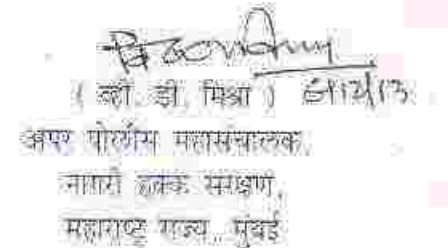 ( व्ही. डी. मिश्रा ) 6/12/13
अपर पोलीस महासंचालक,
नागरी हक्क संरक्षण,
महाराष्ट्र राज्य, मुंबई